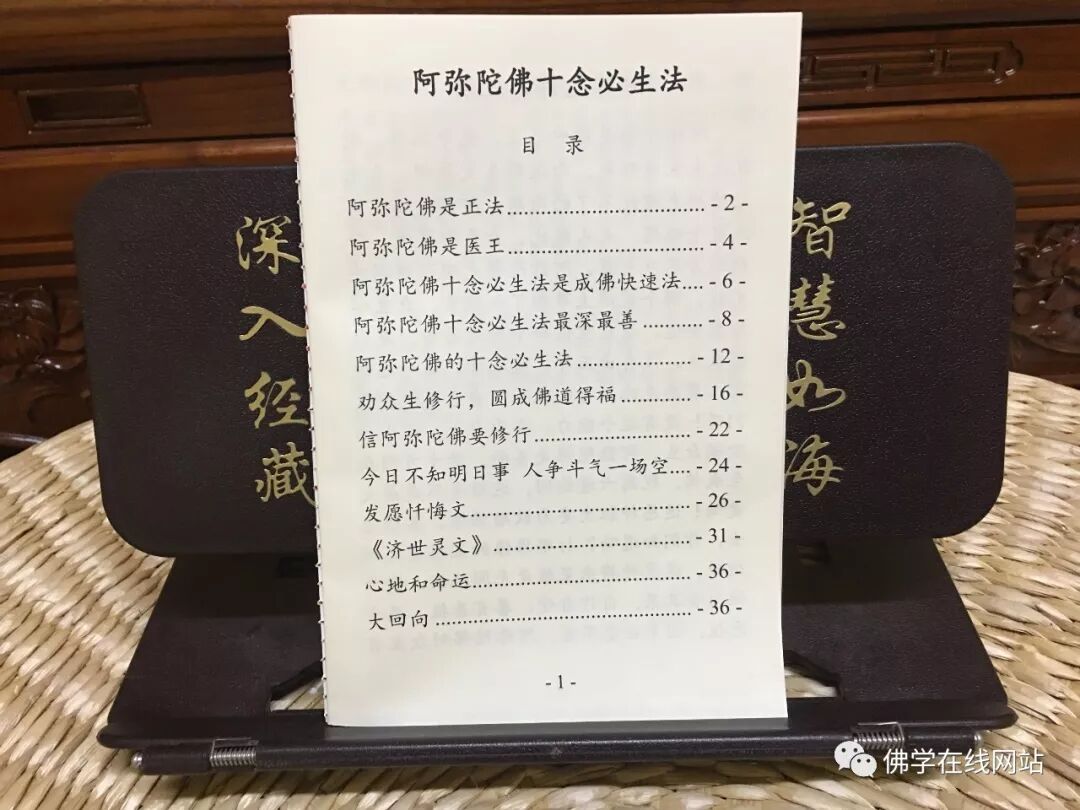 阿弥陀佛十念必生法
目 录
阿弥陀佛是正法................................... - 2 -
阿弥陀佛是医王................................... - 4 -
阿弥陀佛十念必生法是成佛快速法.... - 6 -
阿弥陀佛十念必生法最深最善........... - 8 -
阿弥陀佛的十念必生法.................... - 12 -
劝众生修行，圆成佛道得福................. - 16 -
信阿弥陀佛要修行........................... - 22 -
今日不知明日事 人争斗气一场空.... - 24 -
发愿忏悔文....................................... - 26 -
《济世灵文》................................... - 31 -
心地和命运....................................... - 36 -
大回向............................................. - 36 -
- 1 -
深入经藏
智慧如海
佛学在线网站